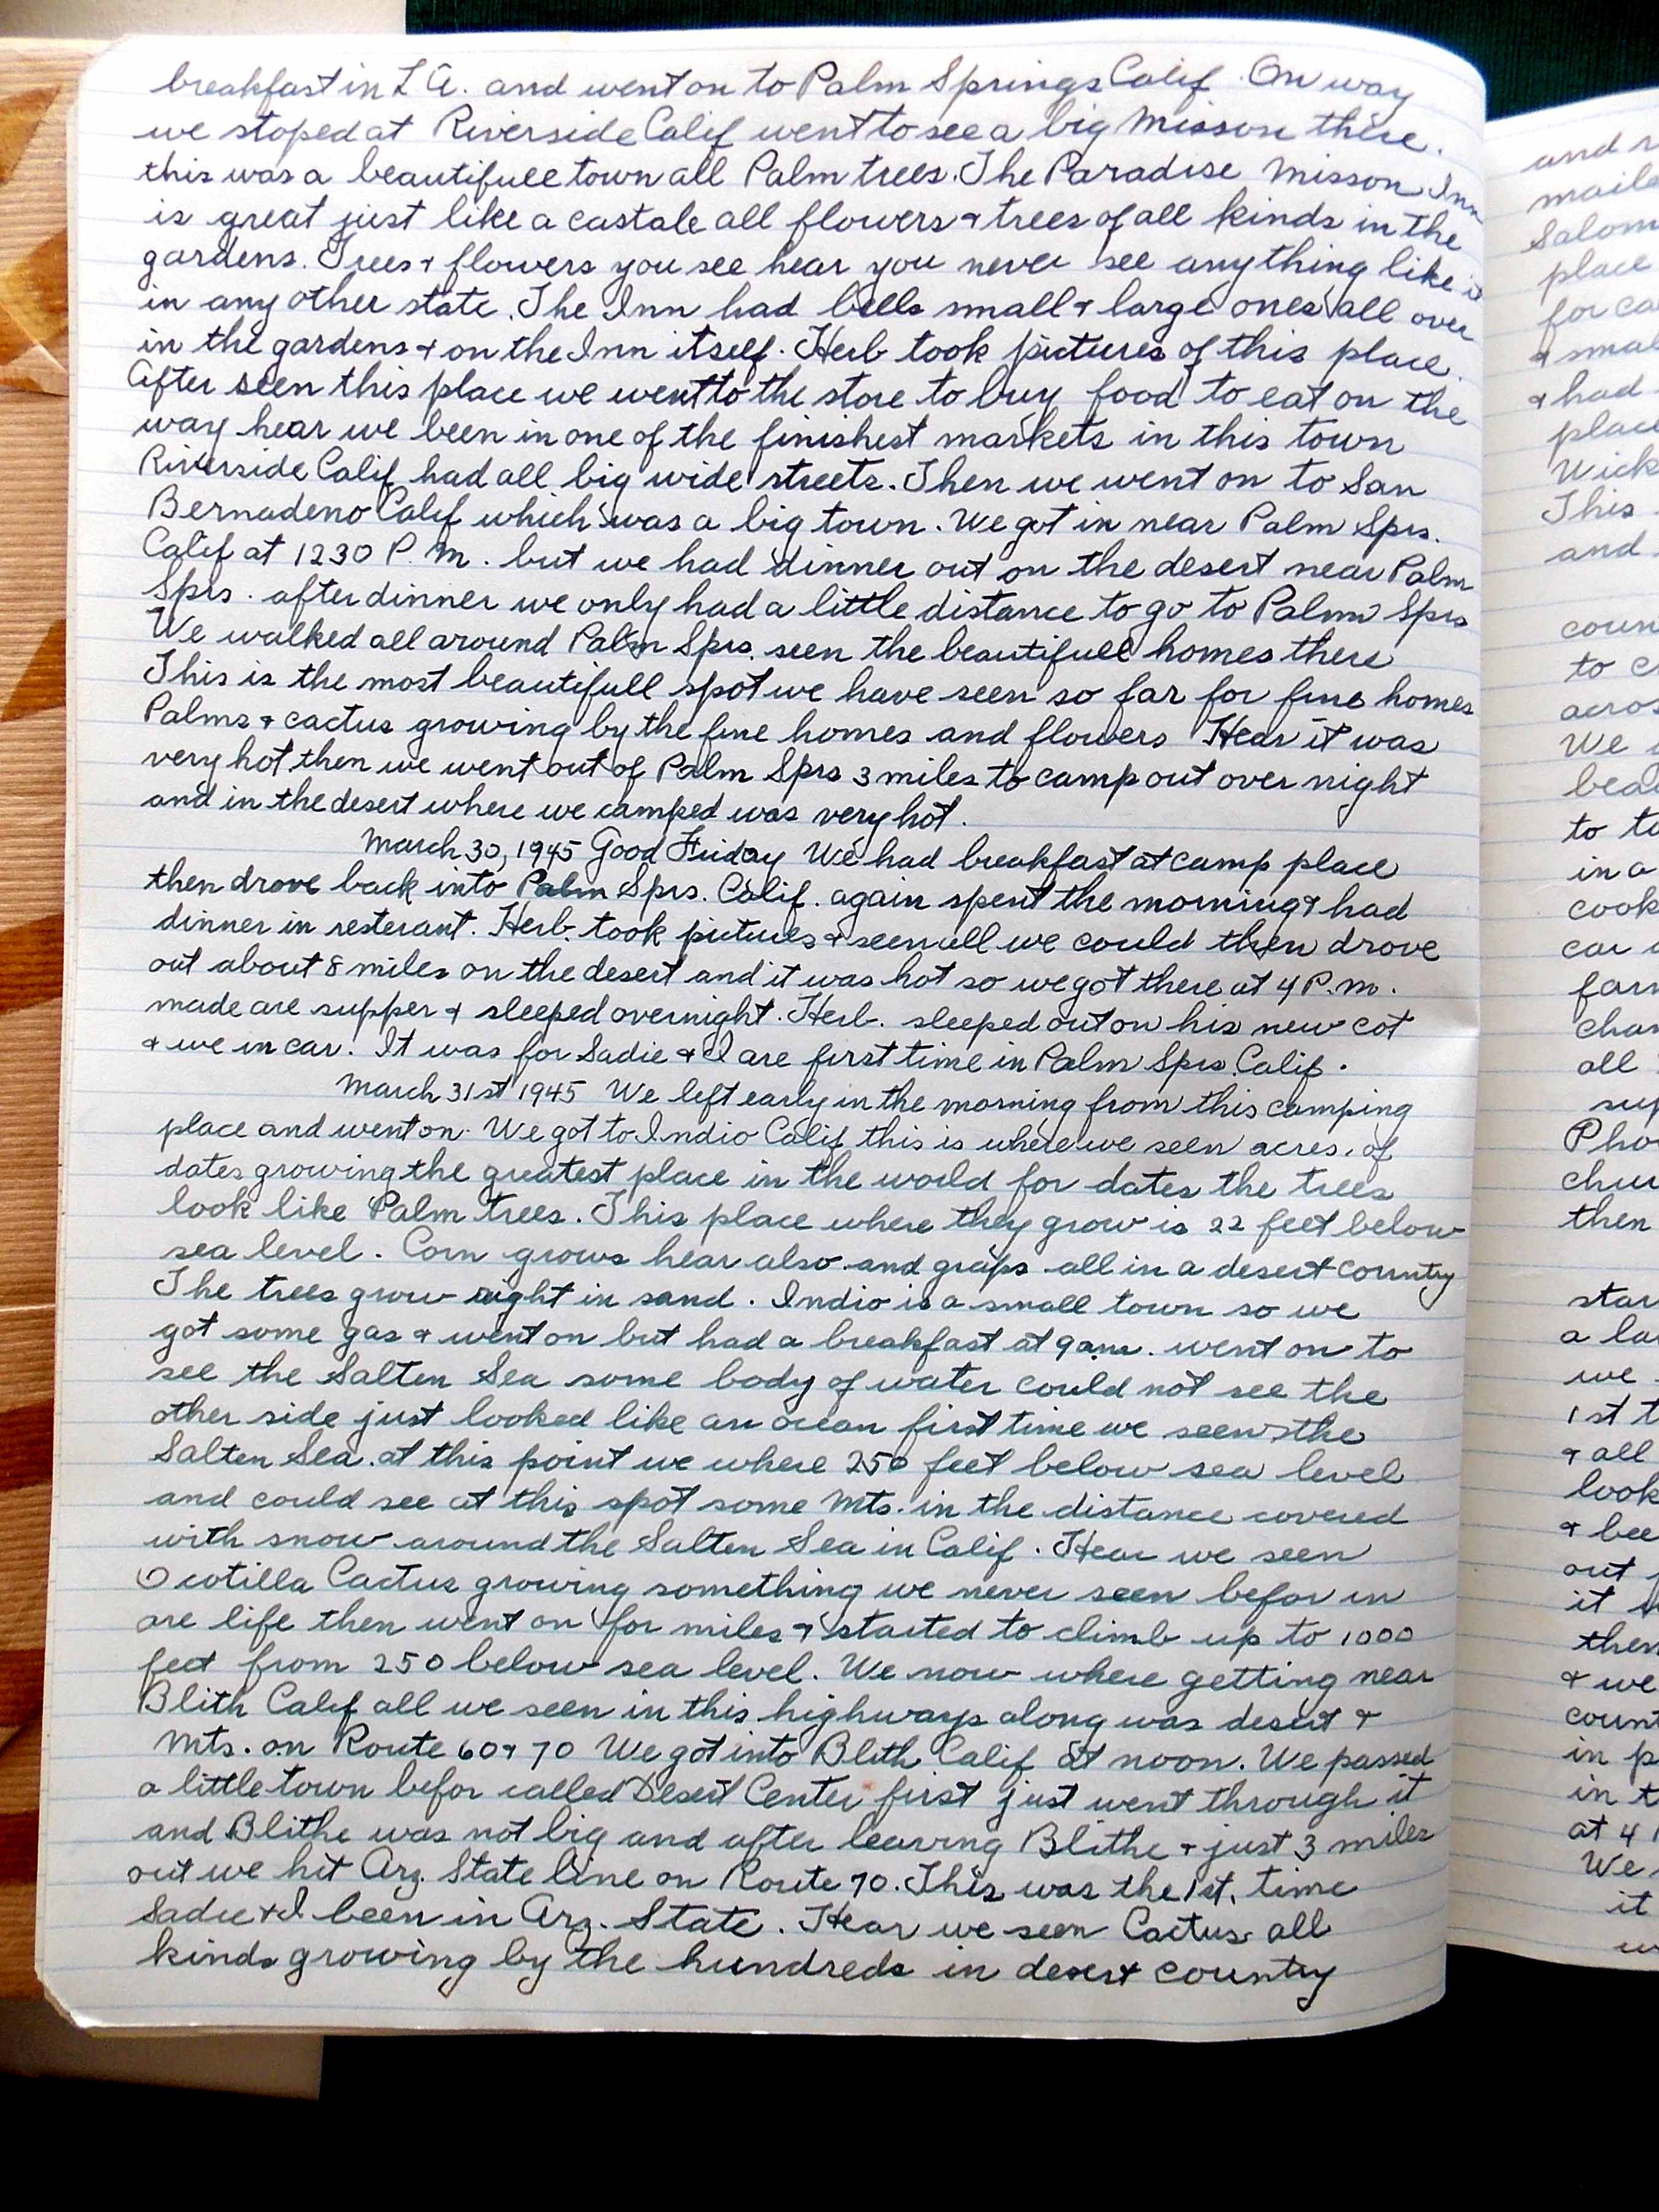 breakfast in L A. and went on to Palm Springs Calif. On way
we stoped at Riverside Calif went to see a big Misson there.
this was a beautifull town all Palm trees. The Paradise Misson Inn
is great just like a castale all flowers + trees of all kinds in the
gardens. Trees + flowers you see hear you never see anything like it
in any other state. The Inn had bells small + large ones all over
in the gardens + on the Inn itself. Herb took pictures of this place.
After seen this place we went to the store to buy food to eat on the
way hear we been in one of the finishest markets in this town
Riverside Calif had all big wide streets. Then we went on to San
Bernadeno Calif which was a big town. We got in near Palm Sprs.
Calif at 1230 P.M. but we had dinner out on the desert near Palm
Sprs. after dinner we only had a little distance to go to Palm Sprs
We walked all around Palm Sprs. seen the beautifull homes there
This is the most beautifull spot we have seen so far for fine homes
Palms + cactus growing by the fine homes and flowers Hear it was
very hot then we went out of Palm Sprs 3 miles to camp out over night
and in the desert where we camped was very hot.
March 30, 1945 Good Friday We had breakfast at camp place
then drove back into Palm Sprs. Calif. again spent the morning + had
dinner in resterant. Herb. took pictures + seen all we could then drove
out about 8 miles on the desert and it was hot so we got there at 4 P.m.
made are supper + sleeped overnight. Herb. sleeped out on his new cot
+ we in car. It was for Sadie + I are first time in Palm Sprs. Calif.
March 31st 1945 We left early in the morning from this camping
place and went on. We got to Indio Calif this is where we seen acres of
dates growing the greatest place in the world for dates the trees
look like Palm trees. This place where they grow is 22 feet below
sea level. Corn grows hear also and graps all in a desert country
The trees grow right in sand. Indio is a small town so we
got some gas + went on but had a breakfast at 9 am. went on to
see the Salten Sea some body of water could not see the
other side just looked like an ocean first time we seen the
Salten Sea. at this point we where 250 feet below sea level
and could see at this spot some Mts. in the distance covered
with snow around the Salten Sea in Calif. Hear we seen
Ocotilla Cactus growing something we never seen befor in
are life then went on for miles + started to climb up to 1000
feet from 250 below sea level. We now where getting near
Blith Calif all we seen in this highways along was desert +
Mts. on Route 60 + 70 We got into Blith Calif at noon. We passed
a little town befor called Desert Center first just went through it
and Blithe was not big and after leaving Blithe + just 3 miles
out we hit Arz. State line on Route 70. This was the 1st. time
Sadie + I been in Arz. State. Hear we seen Cactus all
kinds growing by the hundreds in desert country
and
maile
Salom
place
for ca
+ smal
+ had
place
Wick
This
and
coun
to c
acros
We
bea
to t
in a
cook
car
far
cha
all
sup
Pho
chu
then
star
a la
we
1st t
+ all
look
+ bee
out
it
then
+ we
count
in p
in t
at 4
We
it